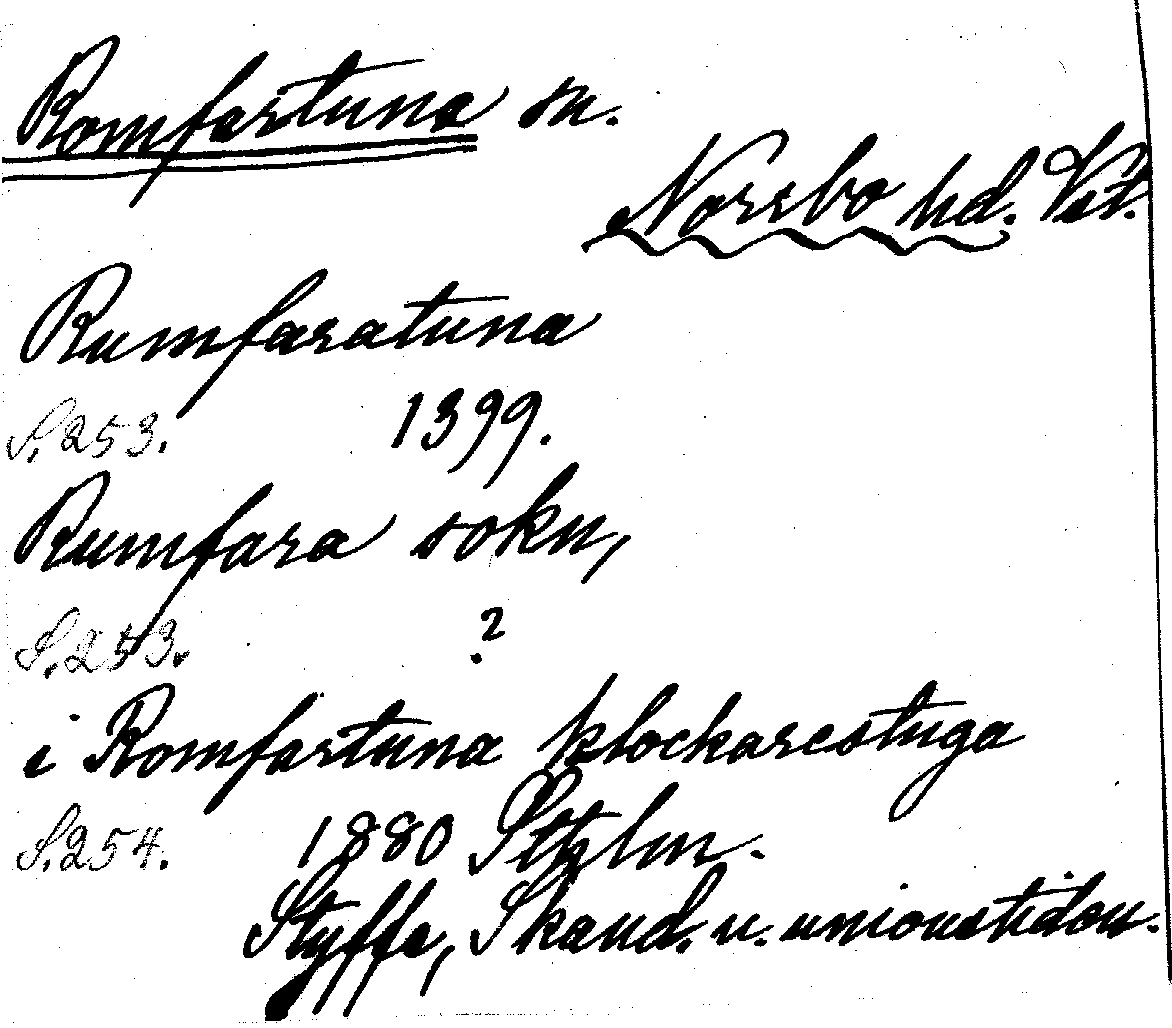 Romfartuna sn.
Norrbo hd. Vst.
Rumfaratuna
S. 253. 1399.
Rumfara sokn,
S. 253. ?
i Romfartuna klockarestuga
S. 254. 1880 Sthlm.
Styffe, Skand. u. unionstiden.